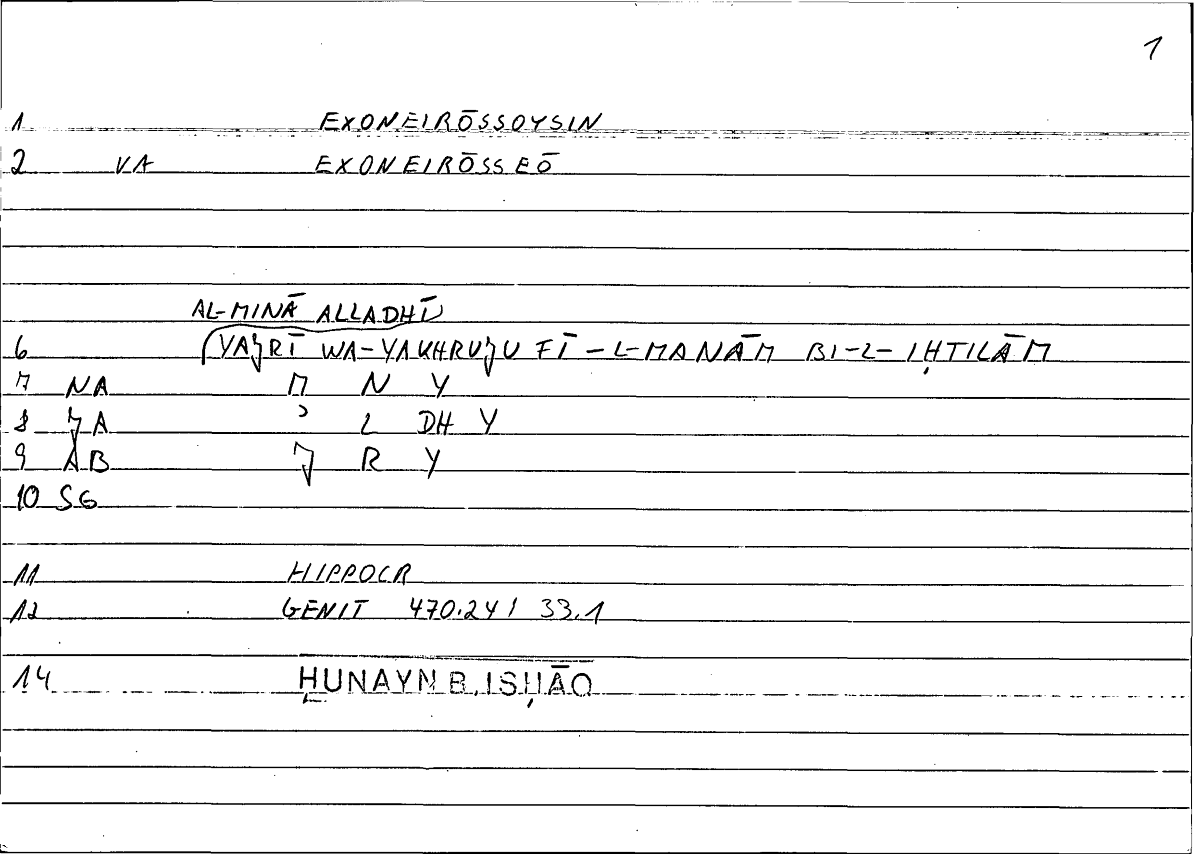 1
1 EXONEIRŌSSOYSIN
2 VA EXONEIRŌSSEŌ
AL-MINĀ ALLADHĪ
6 YAǮRĪ WA-YAKHRUǮU FĪ-L-MANĀM BI-L-IḤTILĀM
7 NA M N Y
8 ǮA ʾ L DH Y
9 AB Ǯ R Y
10 SG
11 HIPPOCR
12 GENIT 470.24 / 33.1
14 ḤUNAYN B. ISḤĀQ